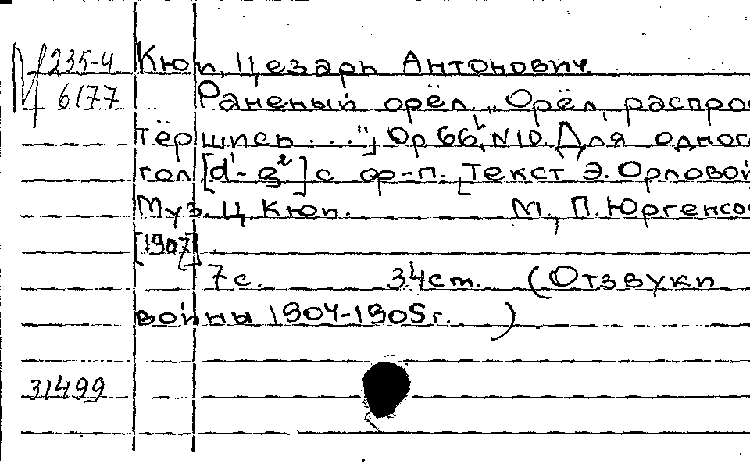 М 235-4 Кюи, Цезарь Антонович
6177 Раненый орёл. „Орёл, распро
тёршись ...", Op 66, N10. Для одног
гол [d¹-g²] с ф-п. Текст Э. Орловой
Муз. Ц. Кюи. М., П. Юргенсо
[1907].
7с. 34см. (Отзвуки
войны 1904-1905г. )
31499